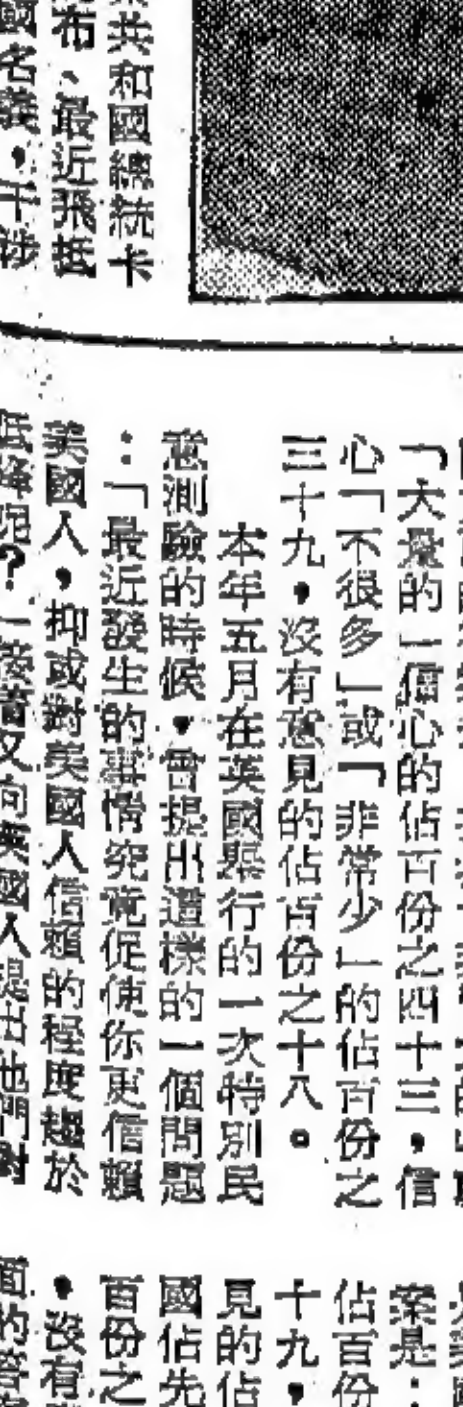 共和國總統卡
布、最近飛抵
國名義，干涉
「大量的」信心的佔百份之四十三，信
心「不很多」或「非常少」的佔百份之
三十九，沒有意見的佔百份之十八。
本年五月在英國舉行的一次特別民
意測驗的時候，曾提出這樣的一個問題
：「最近發生的事情究竟促使你更信賴
美國人，抑或對美國人信賴的程度趨於
低降呢？」接着又向英國人提出他們對
案是：
佔百份
十九，
見的佔
國佔先
百份之
，沒有
面的